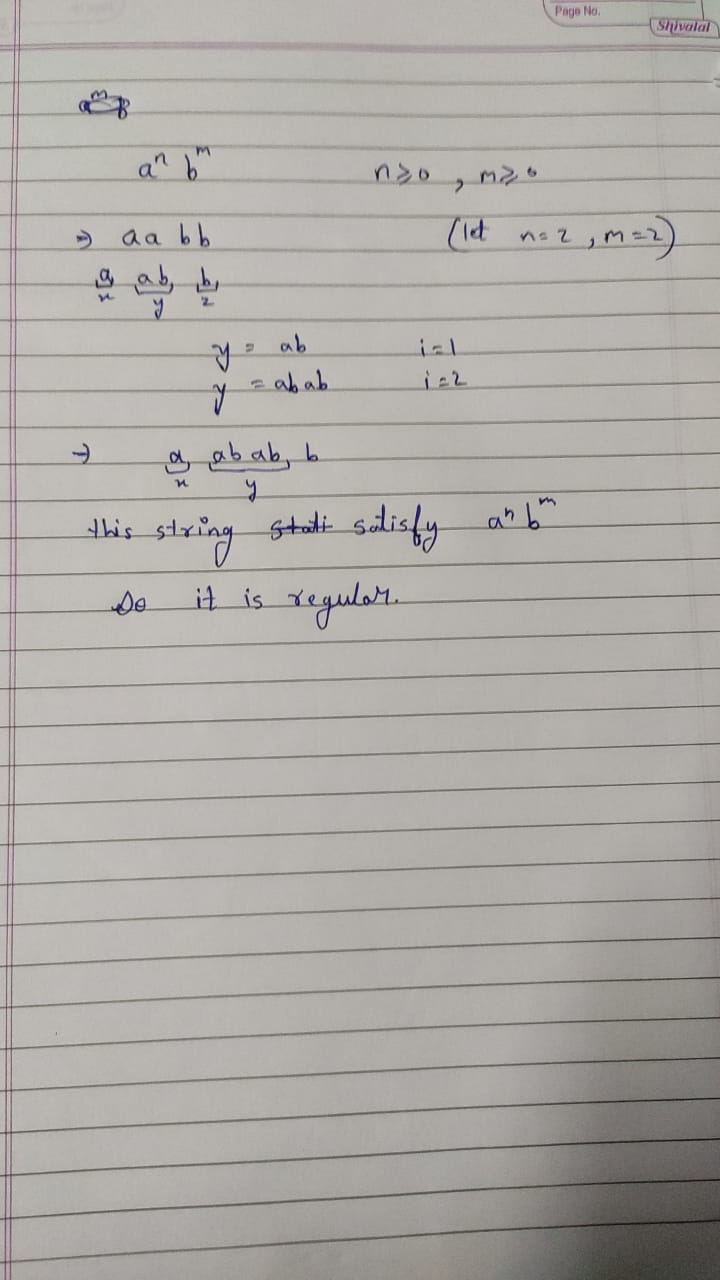 Page No.
Shivalal
aⁿ bᵐ n≥0 , m≥0
⇒ aa bb (let n=2 , m=2)
a ab b
x y z
y = ab i=1
y = abab i=2
→ a abab b
x y
this string stati satisfy aⁿ bᵐ
So it is regular.